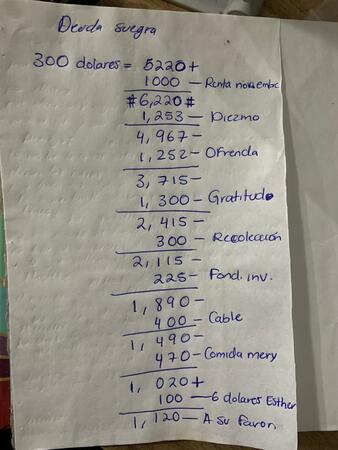 Deuda suegra
300 dolares = 5220+
1000 - Renta noviembre
#6,220#
1,253 - Diezmo
4,967-
1,252 - Ofrenda
3,715-
1,300 - Gratitud
2,415-
300 - Recolección
2,115-
225 - Fond. inv.
1,890-
400 - Cable
1,490-
470 - Comida mery
1,020+
100 - 6 dolares Esther
1,120 - A su favor